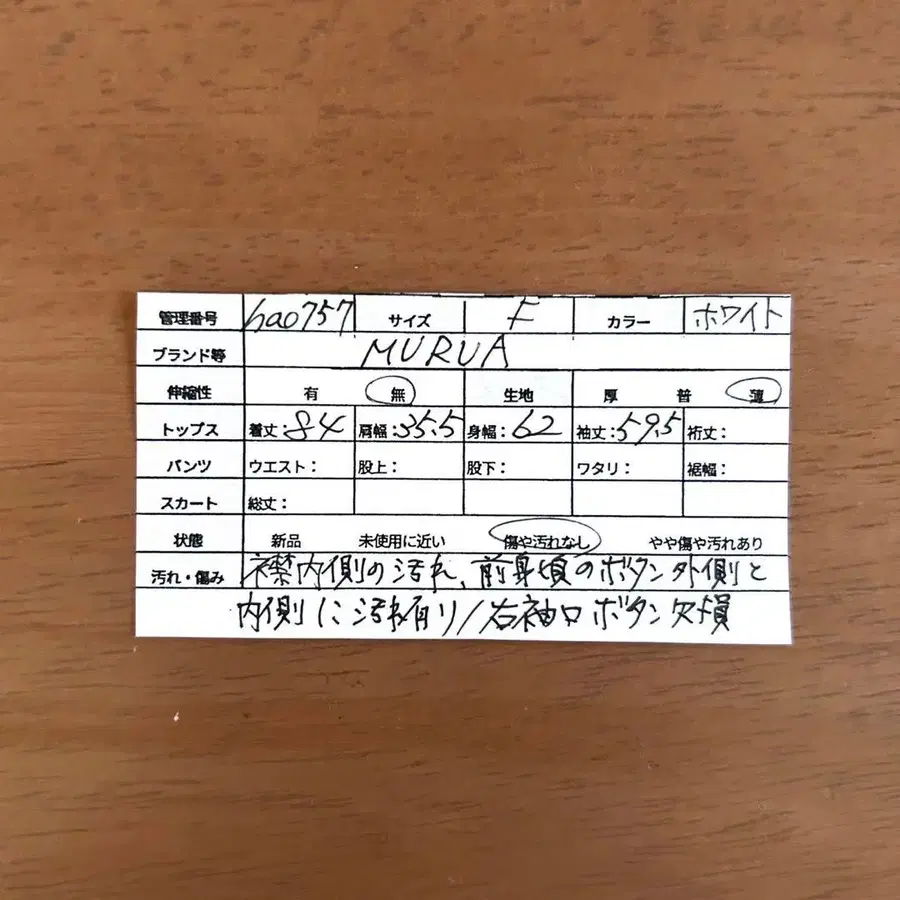 管理番号 hao757 サイズ F カラー ホワイト
ブランド等 MURUA
伸縮性 有 無 生地 厚 普 薄
トップス 着丈:84 肩幅:35.5 身幅:62 袖丈:59.5 裄丈:
パンツ ウエスト: 股上: 股下: ワタリ: 裾幅:
スカート 総丈:
状態 新品 未使用に近い 傷や汚れなし やや傷や汚れあり
汚れ・傷み 襟内側の汚れ、前身頃のボタン外側と
内側に汚れ有り/右袖口ボタン欠損